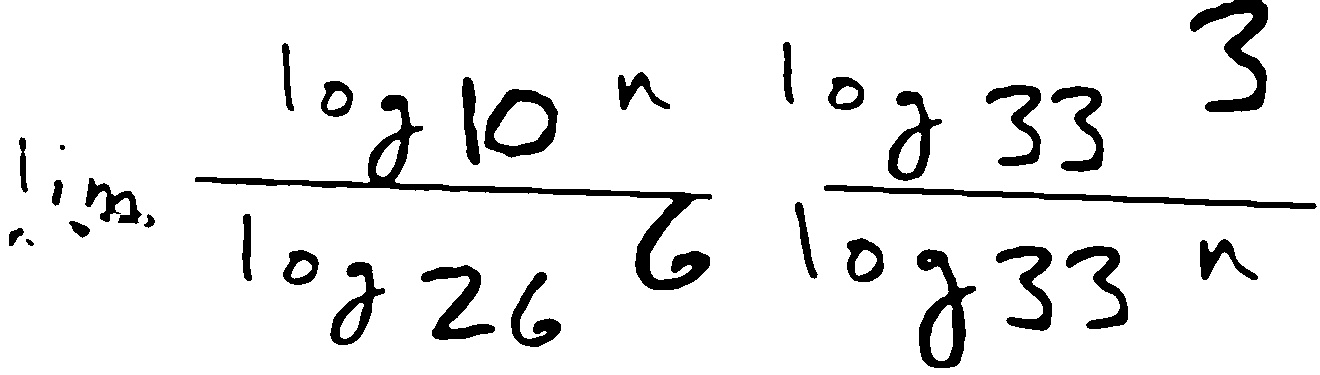 lim log 10 n / log 26 6 log 33 3 / log 33 n